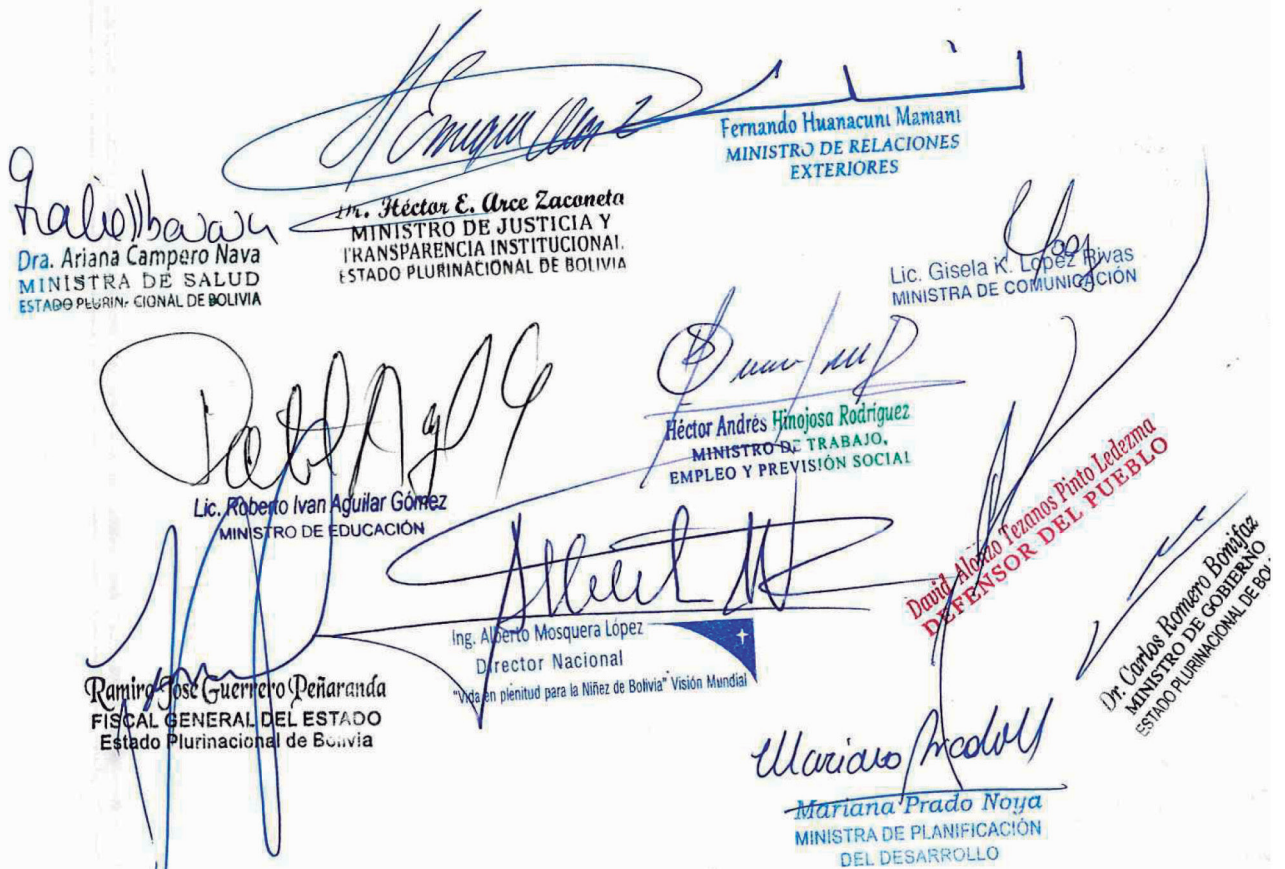 Fernando Huanacuni Mamani
MINISTRO DE RELACIONES
EXTERIORES
Dr. Héctor E. Arce Zaconeta
MINISTRO DE JUSTICIA Y
TRANSPARENCIA INSTITUCIONAL
ESTADO PLURINACIONAL DE BOLIVIA
Dra. Ariana Campero Nava
MINISTRA DE SALUD
ESTADO PLURIN- CIONAL DE BOLIVIA
Lic. Gisela K. López Rivas
MINISTRA DE COMUNICACIÓN
Héctor Andrés Hinojosa Rodríguez
MINISTRO DE TRABAJO,
EMPLEO Y PREVISIÓN SOCIAL
Lic. Roberto Ivan Aguilar Gómez
MINISTRO DE EDUCACIÓN
David Alonzo Tezanos Pinto Ledezma
DEFENSOR DEL PUEBLO
Dr. Carlos Romero Bonifaz
MINISTRO DE GOBIERNO
ESTADO PLURINACIONAL DE BOLI
Ing. Alberto Mosquera López
Director Nacional
"Vida en plenitud para la Niñez de Bolivia" Visión Mundial
Ramiro José Guerrero Peñaranda
FISCAL GENERAL DEL ESTADO
Estado Plurinacional de Bolivia
Mariana Prado Noya
MINISTRA DE PLANIFICACIÓN
DEL DESARROLLO